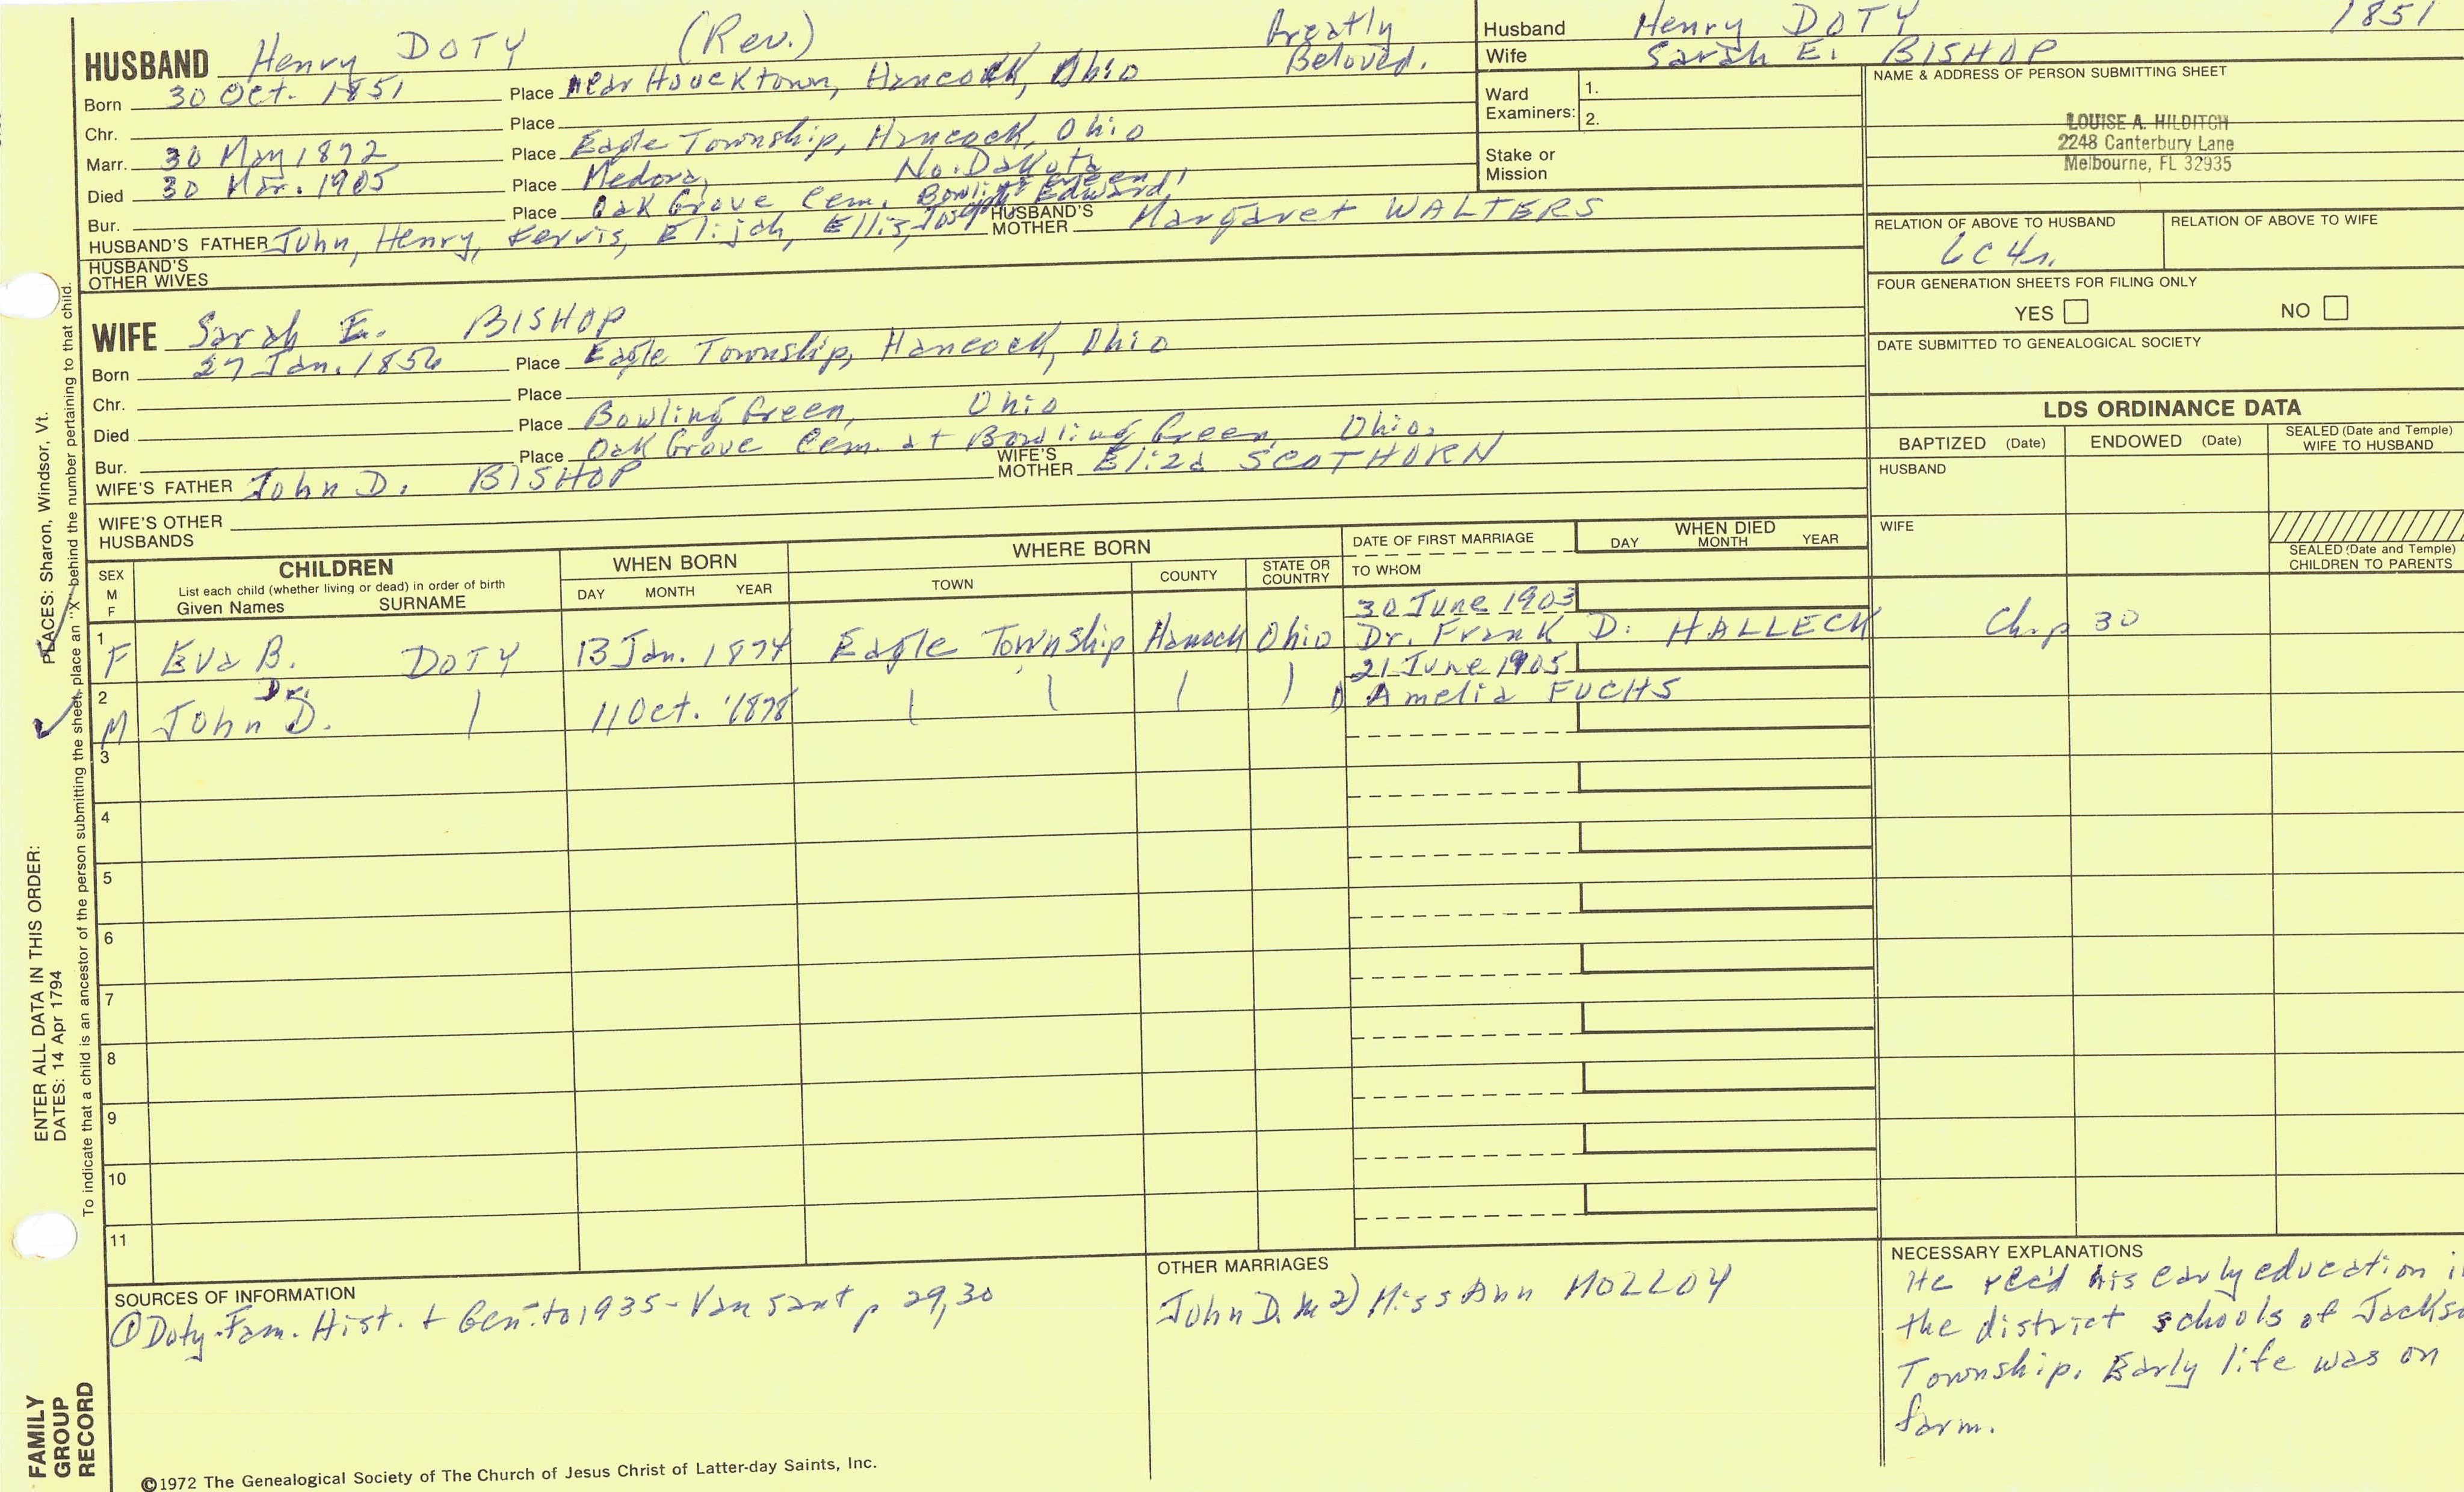 HUSBAND Henry DOTY (Rev.) Greatly Beloved.
Born 30 Oct. 1851 Place near Houcktown, Hancock, Ohio
Chr. Place
Marr. 30 May 1872 Place Eagle Township, Hancock, Ohio
Died 30 Mar. 1905 Place Medora, No. Dakota
Bur. Place Oak Grove Cem. Bowling Green
HUSBAND'S FATHER John, Henry, Kervis, Elijah, Ellis, Joseph Edward HUSBAND'S MOTHER Margaret WALTERS
HUSBAND'S OTHER WIVES
Husband Henry DOTY 1851
Wife Sarah E. BISHOP
Ward Examiners: 1.
2.
Stake or Mission
NAME & ADDRESS OF PERSON SUBMITTING SHEET
LOUISE A. HILDITCH
2248 Canterbury Lane
Melbourne, FL 32935
RELATION OF ABOVE TO HUSBAND RELATION OF ABOVE TO WIFE
FOUR GENERATION SHEETS FOR FILING ONLY
YES NO
DATE SUBMITTED TO GENEALOGICAL SOCIETY
WIFE Sarah E. BISHOP
Born 27 Jan. 1856 Place Eagle Township, Hancock, Ohio
Chr. Place
Died Place Bowling Green, Ohio
Bur. Place Oak Grove Cem. at Bowling Green, Ohio.
WIFE'S FATHER John D. BISHOP WIFE'S MOTHER Eliza SCOTHORN
WIFE'S OTHER HUSBANDS
LDS ORDINANCE DATA
BAPTIZED (Date) ENDOWED (Date) SEALED (Date and Temple) WIFE TO HUSBAND
HUSBAND
WIFE
SEALED (Date and Temple) CHILDREN TO PARENTS
SEX M F CHILDREN List each child (whether living or dead) in order of birth Given Names SURNAME
WHEN BORN DAY MONTH YEAR
WHERE BORN TOWN COUNTY STATE OR COUNTRY
DATE OF FIRST MARRIAGE TO WHOM
WHEN DIED DAY MONTH YEAR
30 June 1903
1 F Eva B. DOTY 13 Jan. 1874 Eagle Township Hancock Ohio Dr. Frank D. HALLECK Chap 30
21 June 1905
2 M Dr. John D. 11 Oct. 1878 Amelia FUCHS
3
4
5
6
7
8
9
10
11
SOURCES OF INFORMATION
① Doty Fam. Hist. + Gen. to 1935 - Van Sant p 29,30
OTHER MARRIAGES
John D. m 2) Miss Ann MOLLOY
NECESSARY EXPLANATIONS
He rec'd his early education
the district schools of
Township. Early life was on
farm.
©1972 The Genealogical Society of The Church of Jesus Christ of Latter-day Saints, Inc.
FAMILY GROUP RECORD
ENTER ALL DATA IN THIS ORDER:
DATES: 14 Apr 1794
PLACES: Sharon, Windsor, Vt.
To indicate that a child is an ancestor of the person submitting the sheet, place an "X" behind the number pertaining to that child.